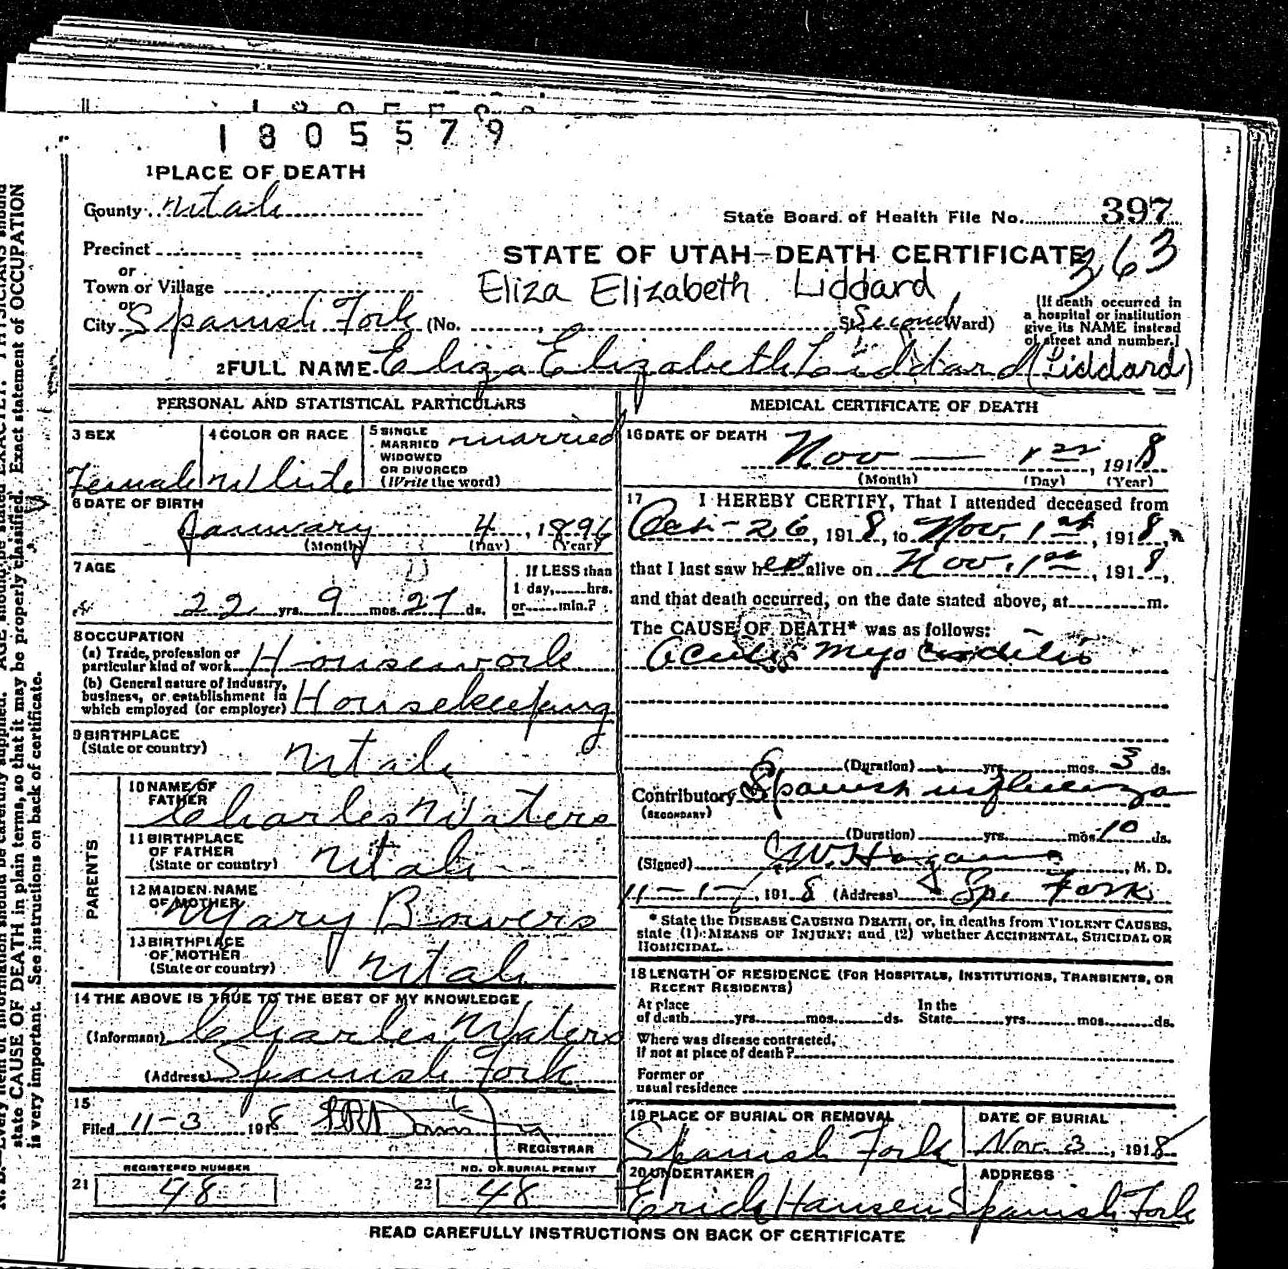 1805579
1 PLACE OF DEATH
County Utah
State Board of Health File No. 397
Precinct
STATE OF UTAH—DEATH CERTIFICATE
363
or
Town or Village
Eliza Elizabeth Liddard
or
City Spanish Fork (No. St. Second Ward)
(If death occurred in
a hospital or institution
give its NAME instead
of street and number.)
2 FULL NAME Eliza Elizabeth Liddard (Liddard)
PERSONAL AND STATISTICAL PARTICULARS
3 SEX
Female
4 COLOR OR RACE
White
5 SINGLE
MARRIED
WIDOWED
OR DIVORCED
(Write the word)
married
6 DATE OF BIRTH
January 4, 1896
(Month) (Day) (Year)
7 AGE
22 yrs. 9 mos. 27 ds.
If LESS than
1 day, hrs.
or min.?
8 OCCUPATION
(a) Trade, profession or
particular kind of work Housework
(b) General nature of industry,
business, or establishment in
which employed (or employer) Housekeeping
9 BIRTHPLACE
(State or country)
Utah
PARENTS
10 NAME OF
FATHER
Charles Waters
11 BIRTHPLACE
OF FATHER
(State or country) Utah
12 MAIDEN NAME
OF MOTHER
Mary Bowers
13 BIRTHPLACE
OF MOTHER
(State or country) Utah
14 THE ABOVE IS TRUE TO THE BEST OF MY KNOWLEDGE
(Informant) Charles Waters
(Address) Spanish Fork
15
Filed 11-3 1918
REGISTRAR
REGISTERED NUMBER
21 48
NO. OF BURIAL PERMIT
22 48
MEDICAL CERTIFICATE OF DEATH
16 DATE OF DEATH
Nov — 1st, 1918
(Month) (Day) (Year)
17 I HEREBY CERTIFY, That I attended deceased from
Oct-26, 1918, to Nov. 1st, 1918,
that I last saw her alive on Nov. 1st, 1918,
and that death occurred, on the date stated above, at m.
The CAUSE OF DEATH* was as follows:
Acute Myocarditis
(Duration) yrs. mos. 3 ds.
Contributory Spanish influenza
(SECONDARY)
(Duration) yrs. mos. 10 ds.
(Signed) Hagan, M. D.
11-1-, 1918 (Address) Sp. Fork
* State the DISEASE CAUSING DEATH, or, in deaths from VIOLENT CAUSES,
state (1) MEANS OF INJURY; and (2) whether ACCIDENTAL, SUICIDAL OR
HOMICIDAL.
18 LENGTH OF RESIDENCE (FOR HOSPITALS, INSTITUTIONS, TRANSIENTS, OR
RECENT RESIDENTS)
At place
of death yrs. mos. ds.
In the
State yrs. mos. ds.
Where was disease contracted,
if not at place of death?
Former or
usual residence
19 PLACE OF BURIAL OR REMOVAL
Spanish Fork
DATE OF BURIAL
Nov. 3, 1918
20 UNDERTAKER
Erick Hansen
ADDRESS
Spanish Fork
READ CAREFULLY INSTRUCTIONS ON BACK OF CERTIFICATE
state CAUSE OF DEATH in plain terms, so that it may be properly classified. Exact statement of OCCUPATION
is very important. See instructions on back of certificate.